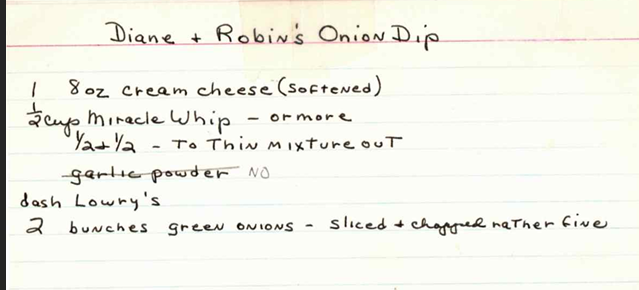 Diane + Robin's Onion Dip
1 8 oz cream cheese (softened)
1/2 cup Miracle Whip - or more
1/2 + 1/2 - To Thin mixture out
garlic powder NO
dash Lowry's
2 bunches green onions - sliced + chopped rather fine